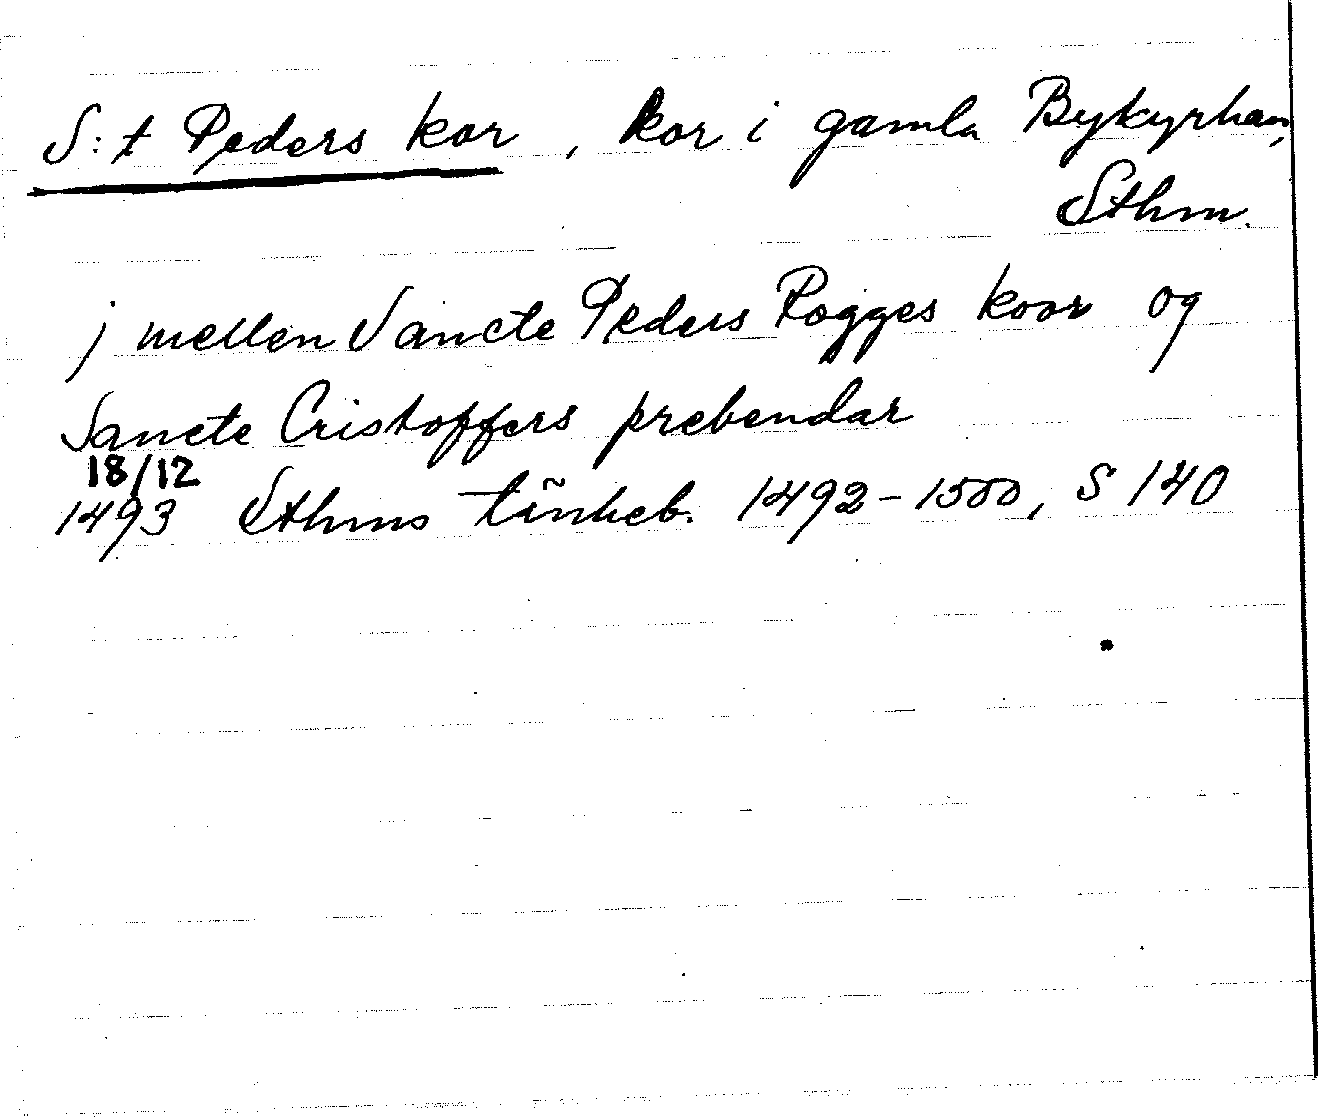 S:t Peders kor, kor i gamla Bykyrkan,
Sthm.
j mellen Sancte Peders Rogges koor og
Sancte Cristoffers prebendar
18/12
1493 Sthms tänkeb. 1492-1500, S 140